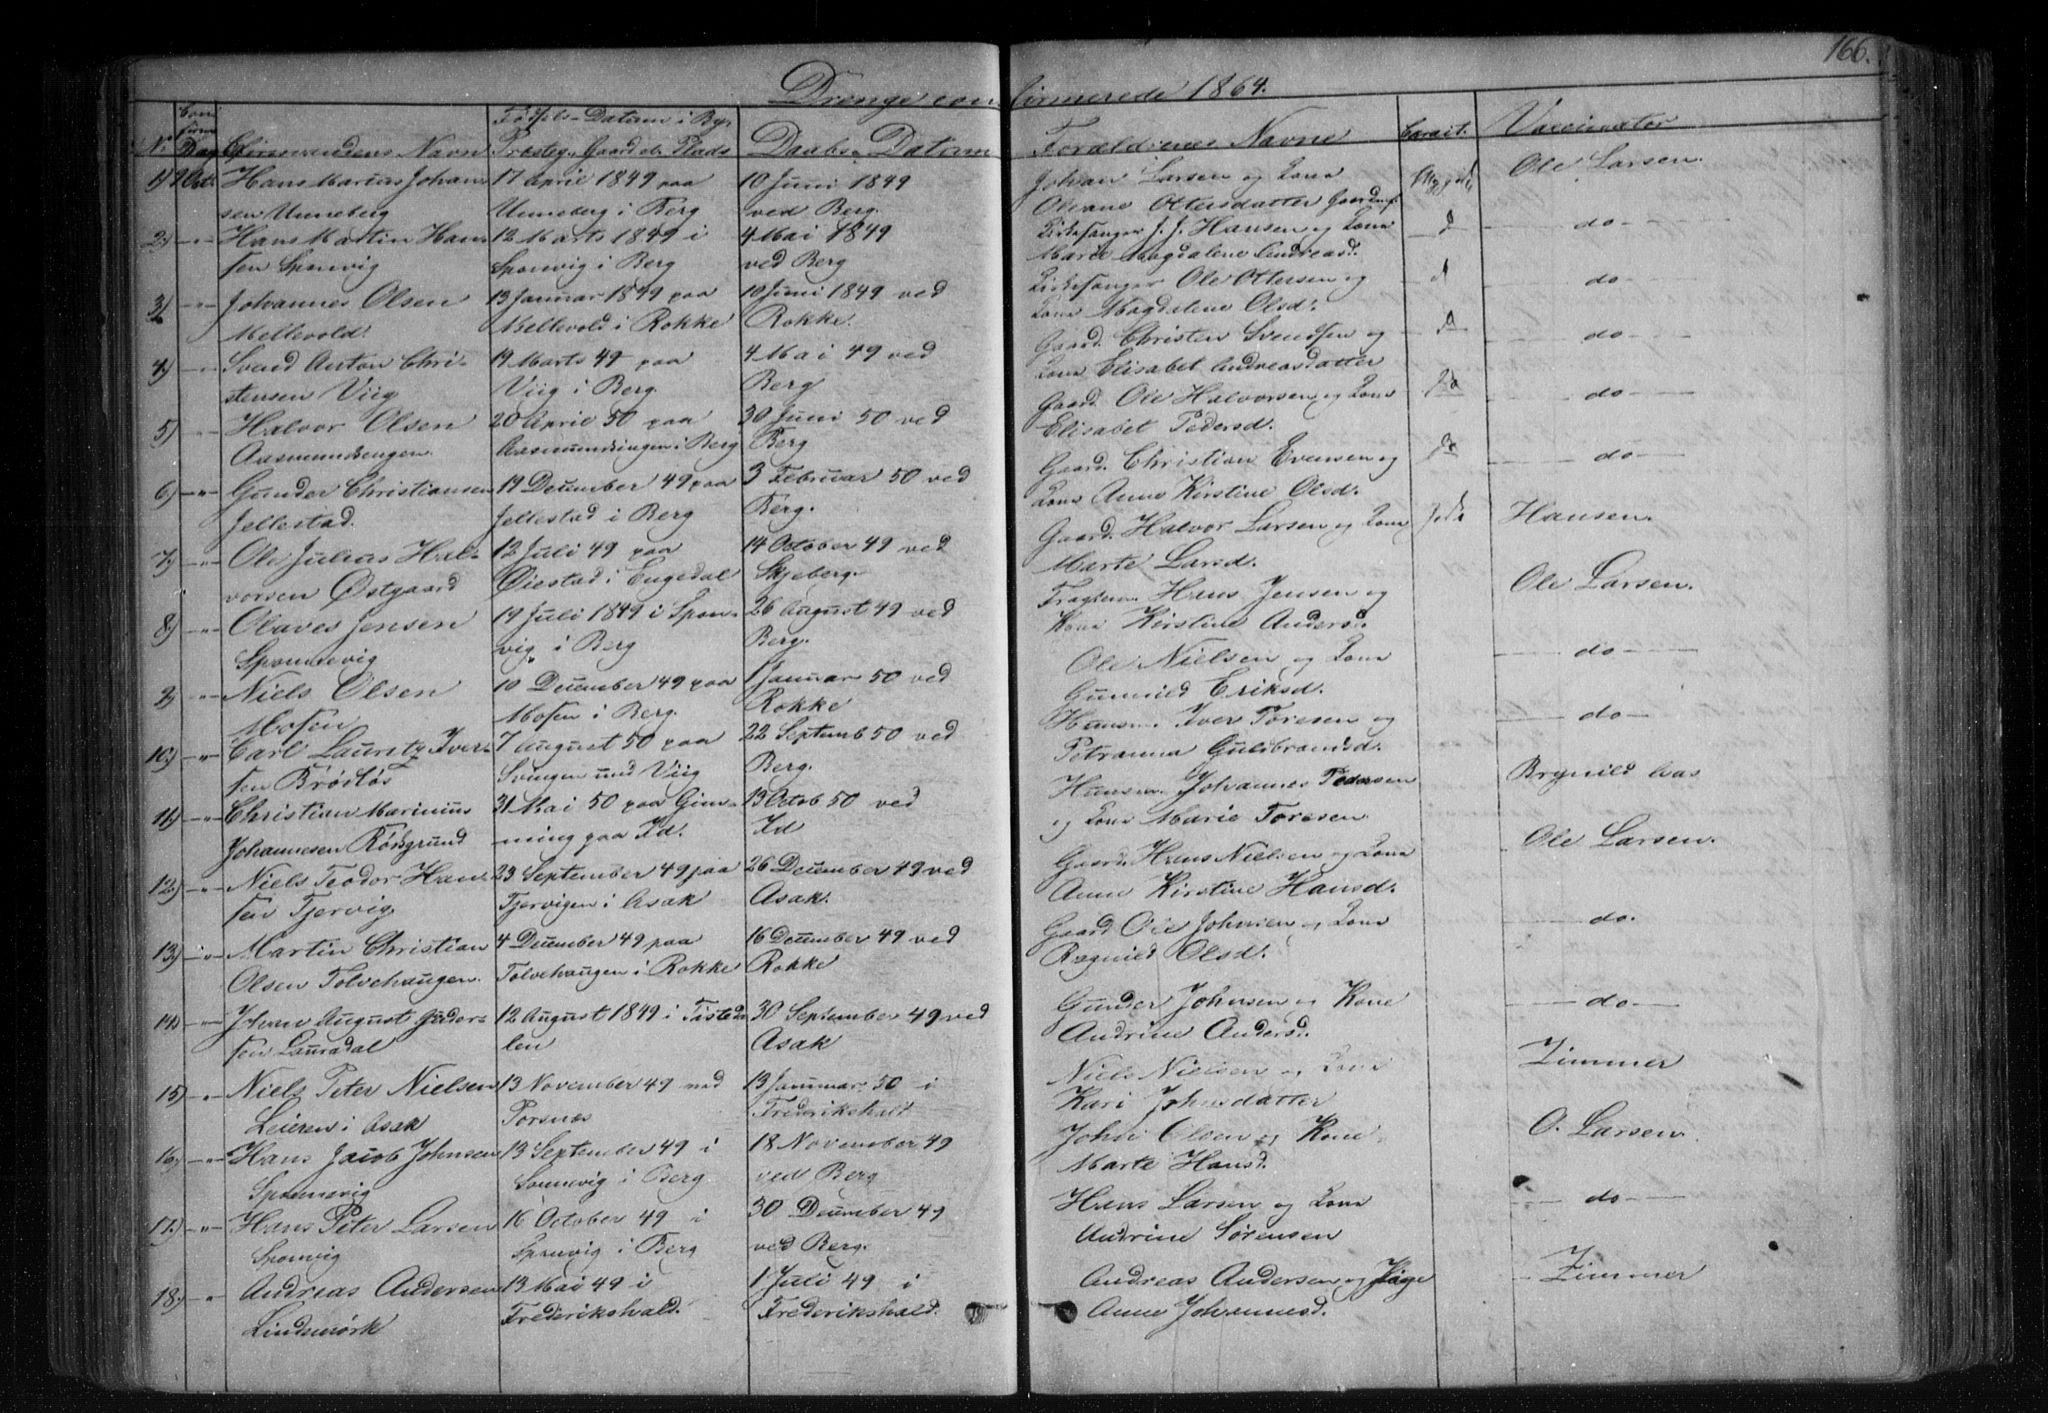 166.
Drenge confirmerede 1864.
No Confirm. Dag Confirmandens Navn Fødsels-Datum i By, Præsteg., Gaard el. Plads Daabs-Datum Forældrenes Navne Caract. Vaccinator
1) 9 Oct. Hans Marius Johan- 17 April 1849 paa 10 Juni 1849 Johan Larsen og Kone Ole Larsen.
sen Unneberg Unneberg i Berg ved Berg. Oleane Ottersdatter
2) -"- Hans Martin Han- 12 Marts 1849 i 4 Mai 1849 Kirkesanger J. J. Hansen og Kone do
sen Sponvig Sponvig i Berg ved Berg Marie Magdalene Andreasd.
3) -"- Johannes Olsen 13 Januar 1849 paa 10 Juni 1849 ved Kirkesanger Ole Ottersen og do
Mellevold. Mellevold i Rokke Rokke. Kone Magdalene Olsd.
4) -"- Svend Anton Chri- 19 Marts 49 paa 4 Mai 49 ved Gaard. Christen Svendsen og do
stensen Viig Viig i Berg. Berg Kone Elisabet Andreasdatter
5) -"- Halvor Olsen 20 April 50 paa 30 Juni 50 ved Gaard. Ole Halvorsen og Kone do
Aasmundsengen. Aasmundsengen i Berg Berg Elisabet Pedersd.
6) -"- Gunder Christiansen 19 December 49 paa 3 Februar 50 ved Gaard. Christian Evensen og do
Jellestad. Jellestad i Berg Berg. Kone Anne Kirstine Olsd.
7) -"- Ole Julius Hal- 12 Juli 49 paa 14 October 49 ved Gaard. Halvor Larsen og Kone Hansen.
vorsen Østgaard Øiestad i Engedal Skjeberg. Marte Larsd.
8) -"- Olaves Jensen 19 Juli 1849 i Spon- 26 August 49 ved Hans Jensen og Ole Larsen.
Sponevig vig i Berg Berg. Kone Kirstine Andersd.
9) -"- Niels Olsen 10 December 49 paa 1 Januar 50 ved Ole Nielsen og Kone do
Mosen Mosen i Berg. Rokke Gunnild Eriksd.
10) -"- Carl Lauritz Iver- 7 August 50 paa 22 Septemb 50 ved Husm. Iver Toresen og do
sen Brödlös Svingen und Viig Berg. Petranna Gulbrandsd.
11) -"- Christian Marinius 31 Mai 50 paa Gim- 13 Octob 50 ved Husm. Johannes Pedersen Brynild Aas
Johannesen Rörgrund ming paa Id. Id og Kone Marie Toresen.
12) -"- Niels Teodor Han- 23 September 49 paa 26 December 49 ved Gaard. Hans Nielsen og Kone Ole Larsen.
sen Tjervig Tjervigen i Asak Asak. Anne Kirstine Hansd.
13) -"- Martin Christian 4 December 49 paa 16 December 49 ved Gaard Ole Johnsen og Kone do.
Olsen Tolvehaugen. Tolvehaugen i Rokke Rokke Ragnild Olsd.
14) -"- Johan August Guder- 12 August 1849 i Tisteda- 30 September 49 ved Gunder Johnsen og Kone do
sen Lauradal len Asak Andrine Andersd.
15) -"- Niels Peter Nielsen 13 November 49 ved 13 Januar 50 i Niels Nielsen og Kone Zimmer
Leieren i Asak Torsnæs Frederikshald Kari Johnsdatter
16) -"- Hans Jacob Johnsen 13 September 49 i 18 November 49 John Olsen og Kone O. Larsen.
Sponevig Sponevig i Berg. ved Berg Marte Hansd.
17) -"- Hans Peter Larsen 16 October 49 i 30 December 49 Hans Larsen og Kone do
Sponvig Sponvig i Berg ved Berg. Andrine Sørensen
18) -"- Andreas Andersen 13 Mai 49 i 1 Juli 49 i Andreas Andersen og Pige Zimmer
Lindemörk Frederikshald. Frederikshald. Anne Johannesd.